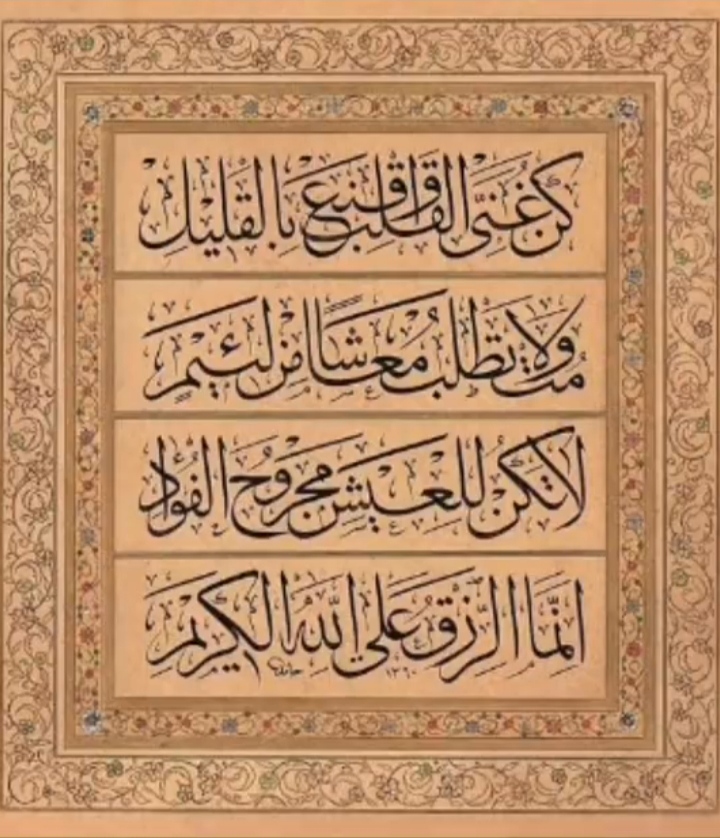 كُنْ غَنِىَّ الْقَلْبِ وَاقْنَعْ بِالْقَلِيلِ
مُتْ وَلَا تَطْلُبْ مَعَاشًا مِنْ لَئِيمٍ
لَا تَكُنْ لِلْعَيْشِ مَجْرُوحَ الْفُؤَادِ
اِنَّمَا الرِّزْقُ عَلَى اللّٰهِ الْكَرِيمِ
حامد ١٣٦٠